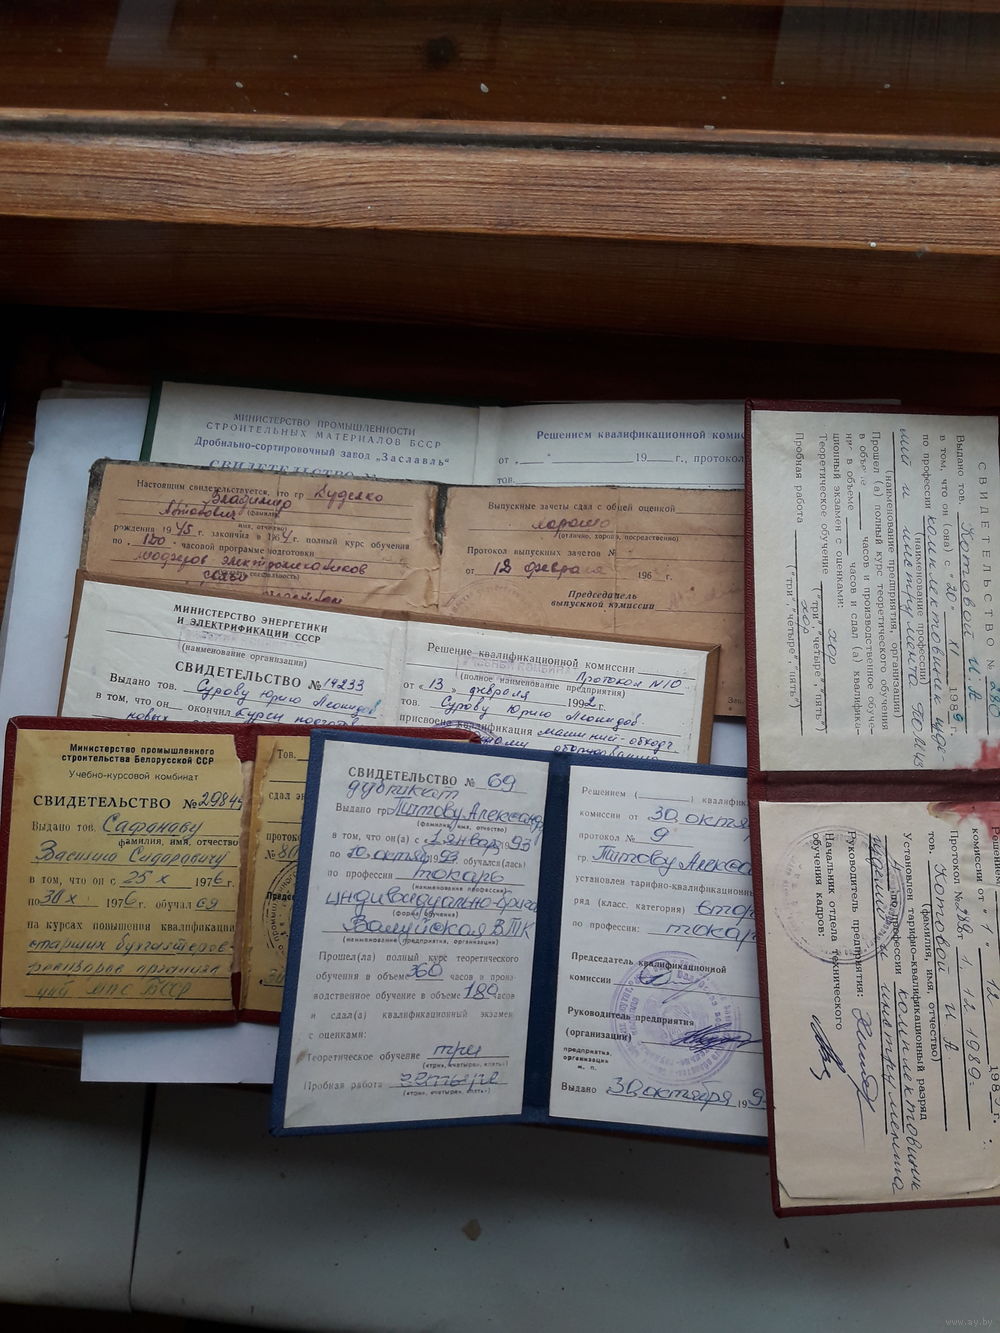 МИНИСТЕРСТВО ПРОМЫШЛЕННОСТИ
СТРОИТЕЛЬНЫХ МАТЕРИАЛОВ БССР
Дробильно-сортировочный завод „Заславль“
СВИДЕТЕЛЬСТВО №
Решением квалификационной
от „ 19 г., протокол
тов.
Настоящим свидетельствуется, что гр Куделко
Владимир
(фамилия,
имя, отчество)
рождения 1945 г. закончил в 1964 г. полный курс обучения
по „ 150 часовой программе подготовки
связи
Выпускные зачеты сдал с общей оценкой
хорошо
(отлично, хорошо, посредственно)
Протокол выпускных зачетов №
от 12 февраля 196 г.
Председатель
выпускной комиссии
МИНИСТЕРСТВО ЭНЕРГЕТИКИ
И ЭЛЕКТРИФИКАЦИИ СССР
(наименование организации)
СВИДЕТЕЛЬСТВО № 14233
Выдано тов. Сурову Юрию Леонидов.
в том, что он окончил курсы
новых
Решение квалификационной комиссии
Протокол N10
(полное наименование предприятия)
от „ 13 „ февраля 1992 г.
тов. Сурову Юрию Леонидов.
присвоена квалификация машинист-обходч
Министерство промышленного
строительства Белорусской ССР
Учебно-курсовой комбинат
СВИДЕТЕЛЬСТВО №2984
Выдано тов. Сафонову
фамилия, имя, отчество
Василию Сидоровичу
в том, что он с 25 X 1976 г.
по 30 X 1976 г. обучал ся
на курсах повышения квалификации
старших бухгалтеров-
Тов.
сдал
протоко
№
СВИДЕТЕЛЬСТВО № 69
дубликат
Выдано гр Титову Александ
(фамилия, имя, отчество)
в том, что он(а) с 1 января 1993
по 10 октяб 1993 обучался(лась)
по профессии токарь
(наименование профессии)
индивидуально-брига
(форма обучения)
Валуйская ВТК
(наименование предприятия, организации)
Прошел(ла) полный курс теоретического
обучения в объеме 360 часов и произ-
водственное обучение в объеме 180 часов
и сдал(а) квалификационный экзамен
с оценками:
Теоретическое обучение три
(«три», «четыре», «пять»)
Пробная работа четыре
(«три», «четыре», «пять»)
Решением ( ) квалифик
комиссии от 30 октя
протокол № 9
гр. Титову Алекса
установлен тарифно-квалификационны
ряд (класс, категория) втор
по профессии: токар
Председатель квалификационной
комиссии
Руководитель предприятия
(организации)
предприятия,
организации
м. п.
Выдано 30 октября 19
СВИДЕТЕЛЬСТВО №
Выдано тов. Котовой И. А
в том, что он (она) с „20„ 11 1989
по профессии комплектовщик
(наименование профессии)
(наименование предприятия, организации)
Прошел (а) полный курс теоретического обучения
в объеме часов и производственное обуче-
ние в объеме часов и сдал (а) квалифика-
ционный экзамен с оценками:
Теоретическое обучение хор
("три", "четыре", "пять")
Пробная работа хор
("три", "четыре", "пять")
Решением
комиссии от "1" 12 1989 г.
Протокол № от 1. 12 1989г.
тов. Котовой И. А.
(фамилия, имя, отчество)
Установлен тарифно-квалификационный разряд
по профессии комплектовщик
изделий и инструмента
Руководитель предприятия:
Начальник отдела технического
обучения кадров:
www.ay.by